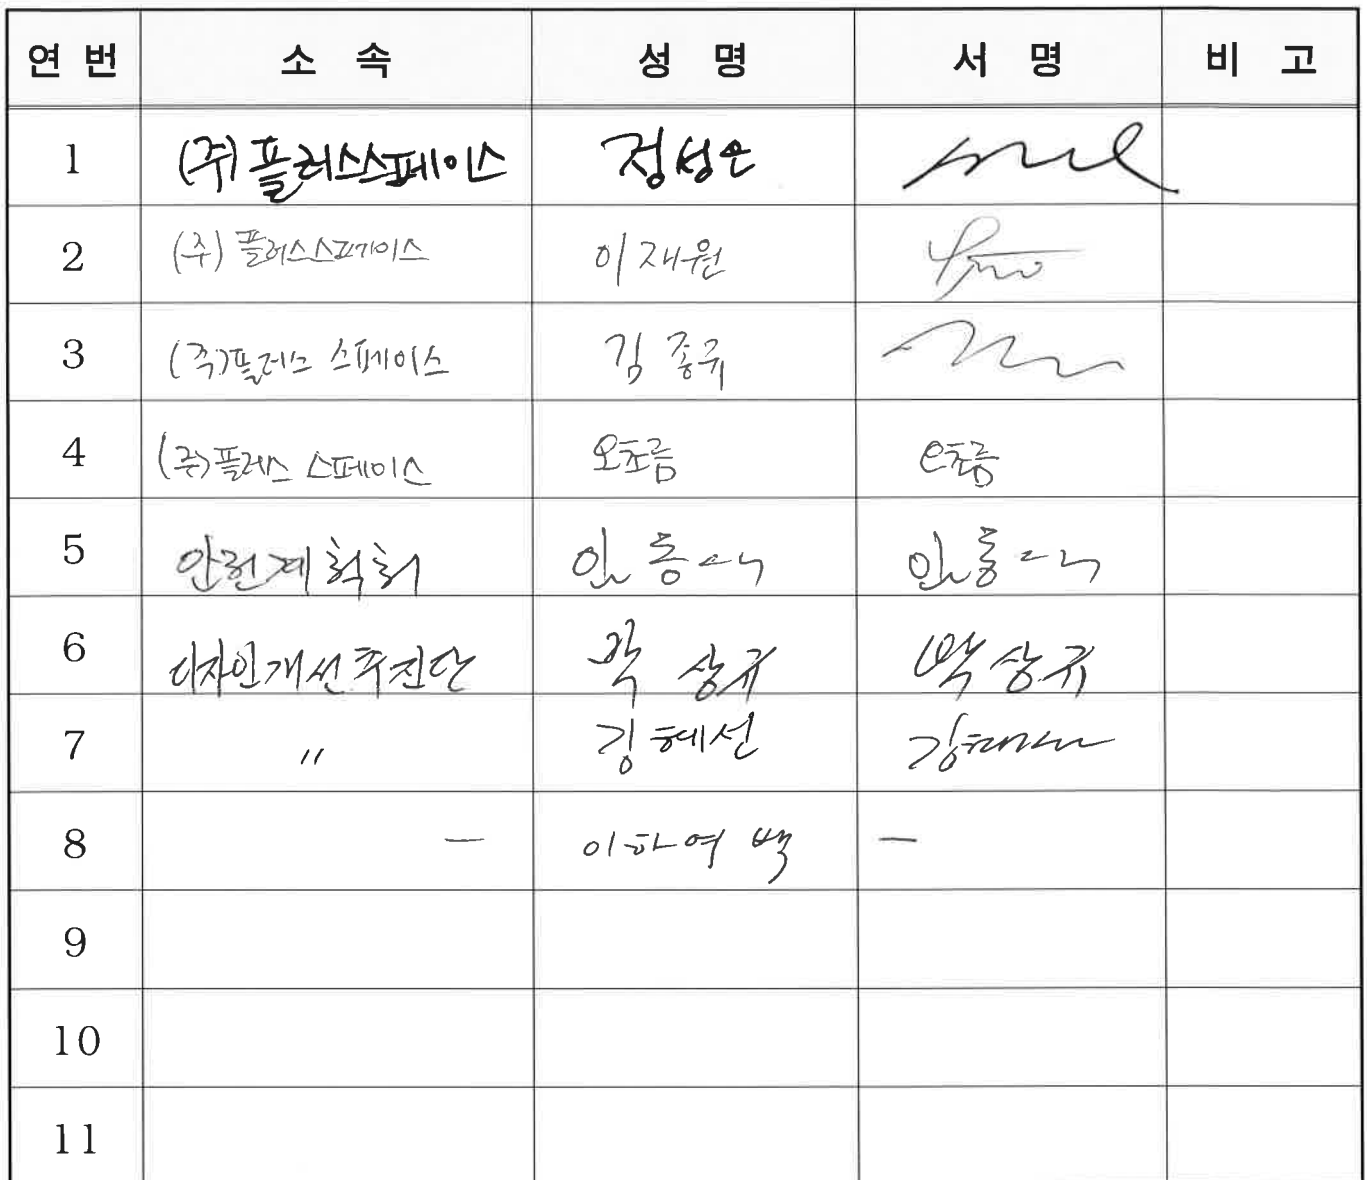 연 번 소 속 성 명 서 명 비 고
1 (주)플러스스페이스 정성은
2 (주)플러스스페이스 이재원
3 (주)플러스 스페이스 김종규
4 (주)플러스 스페이스 오초름 오초름
5
6 디자인개선추진단 박상규 박상규
7 〃 김혜선
8 — 이하여백 —
9
10
11